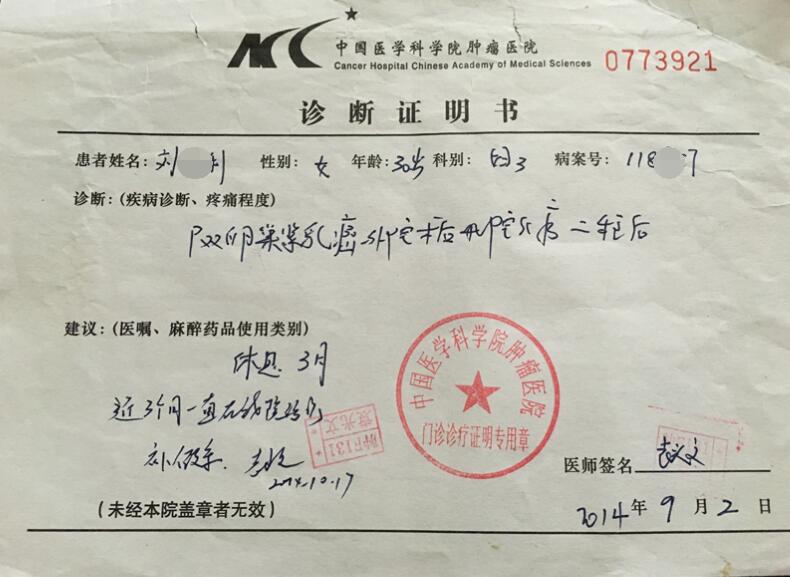 中国医学科学院肿瘤医院
Cancer Hospital Chinese Academy of Medical Sciences
0773921
诊断证明书
患者姓名: 刘 利 性别: 女 年龄: 30岁 科别: 妇3 病案号: 118 7
诊断: (疾病诊断、疼痛程度)
双卵巢浆乳癌外院术后 二程后
建议: (医嘱、麻醉药品使用类别)
休息 3月
近3个月一直在我院
补假条.
2014.10.17
中国医学科学院肿瘤医院
门诊诊疗证明专用章
肿F131
医师签名
(未经本院盖章者无效)
2014年9月2日